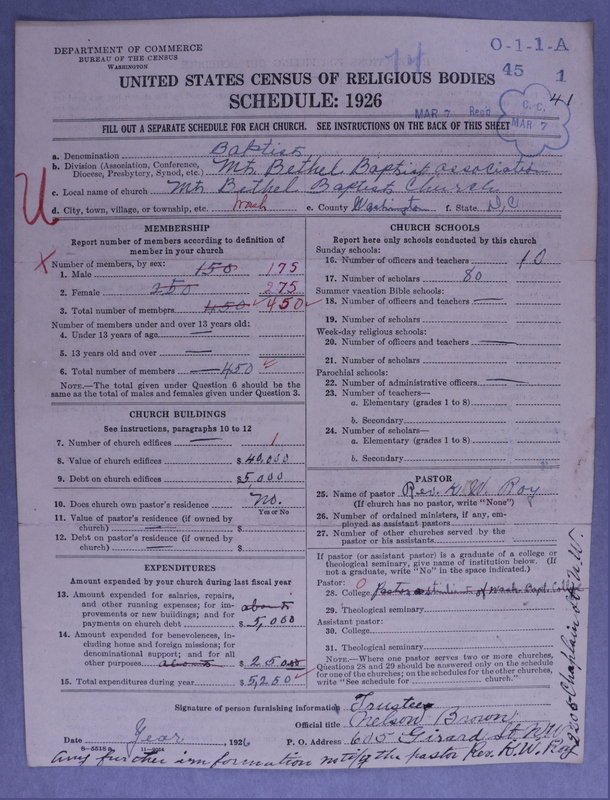 DEPARTMENT OF COMMERCE
BUREAU OF THE CENSUS
WASHINGTON
O-1-1-A
45 1
41
C. C.
MAR 7
MAR 7 Rec'd
UNITED STATES CENSUS OF RELIGIOUS BODIES
SCHEDULE: 1926
FILL OUT A SEPARATE SCHEDULE FOR EACH CHURCH. SEE INSTRUCTIONS ON THE BACK OF THIS SHEET
a. Denomination Baptist
b. Division (Association, Conference, Diocese, Presbytery, Synod, etc.) Mt. Bethel Baptist Association
c. Local name of church Mt. Bethel Baptist Church
d. City, town, village, or township, etc. Wash e. County Washington f. State D, C
MEMBERSHIP
Report number of members according to definition of
member in your church
Number of members, by sex:
1. Male 150 175
2. Female 250 275
3. Total number of members 450 450
Number of members under and over 13 years old:
4. Under 13 years of age
5. 13 years old and over
6. Total number of members 450
NOTE.—The total given under Question 6 should be the
same as the total of males and females given under Question 3.
CHURCH BUILDINGS
See instructions, paragraphs 10 to 12
7. Number of church edifices 1
8. Value of church edifices $ 40,000
9. Debt on church edifices $ 5,000
10. Does church own pastor's residence no.
Yes or No
11. Value of pastor's residence (if owned by
church) $
12. Debt on pastor's residence (if owned by
church) $
EXPENDITURES
Amount expended by your church during last fiscal year
13. Amount expended for salaries, repairs,
and other running expenses; for im-
provements or new buildings; and for
payments on church debt about $ 5,000
14. Amount expended for benevolences, in-
cluding home and foreign missions; for
denominational support; and for all
other purposes about $ 250 00
15. Total expenditures during year $ 5,250
CHURCH SCHOOLS
Report here only schools conducted by this church
Sunday schools:
16. Number of officers and teachers 10
17. Number of scholars 80
Summer vacation Bible schools:
18. Number of officers and teachers
19. Number of scholars
Week-day religious schools:
20. Number of officers and teachers
21. Number of scholars
Parochial schools:
22. Number of administrative officers
23. Number of teachers—
a. Elementary (grades 1 to 8)
b. Secondary
24. Number of scholars—
a. Elementary (grades 1 to 8)
b. Secondary
PASTOR
25. Name of pastor Rev. K. W. Roy
(If church has no pastor, write "None")
26. Number of ordained ministers, if any, em-
ployed as assistant pastors
27. Number of other churches served by the
pastor or his assistants
If pastor (or assistant pastor) is a graduate of a college or
theological seminary, give name of institution below. (If
not a graduate, write "No" in the space indicated.)
Pastor: 0
28. College Pastor a student of Wash. Bapt. Col
29. Theological seminary
Assistant pastor:
30. College
31. Theological seminary
NOTE.—Where one pastor serves two or more churches,
Questions 28 and 29 should be answered only on the schedule
for one of the churches; on the schedules for the other churches,
write "See schedule for church."
Signature of person furnishing information Trustee
Official title Nelson Brown
Date Year, 1926 P. O. Address 605 Girard St. N.W.
8-5515a 11-9064
Any further information notify the pastor Rev. K. W. Roy
2205 Chaplain St. N.W.